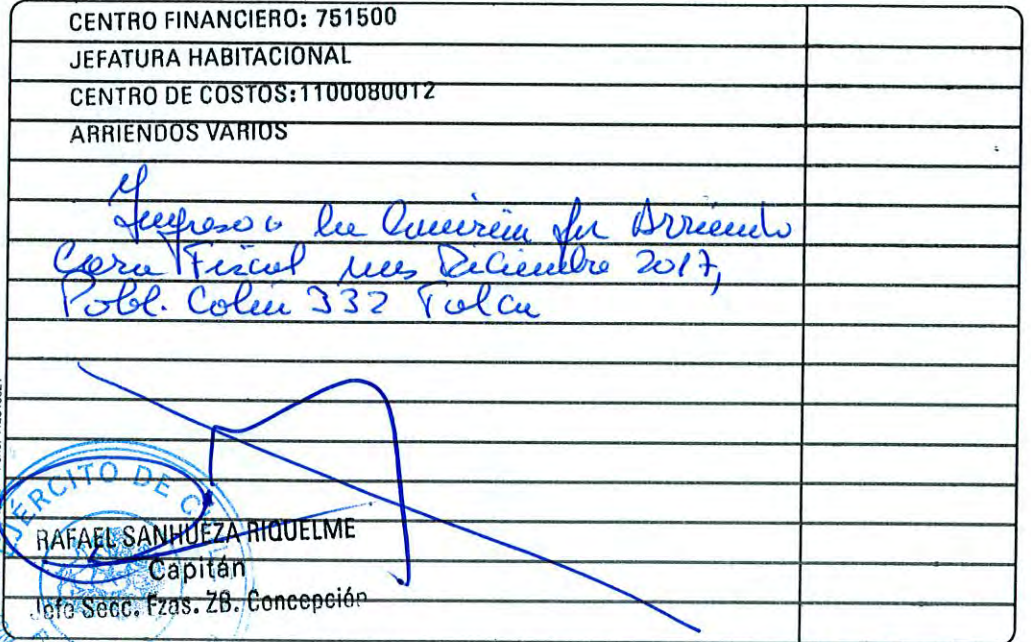 CENTRO FINANCIERO: 751500
JEFATURA HABITACIONAL
CENTRO DE COSTOS:1100080012
ARRIENDOS VARIOS
Ingreso Arriendo
Fiscal mes Diciembre 2017,
Pobl. Colin 332 Talca
EJÉRCITO DE
RAFAEL SANHUEZA RIQUELME
Capitán
Jefe Secc. Fzas. ZB. Concepción